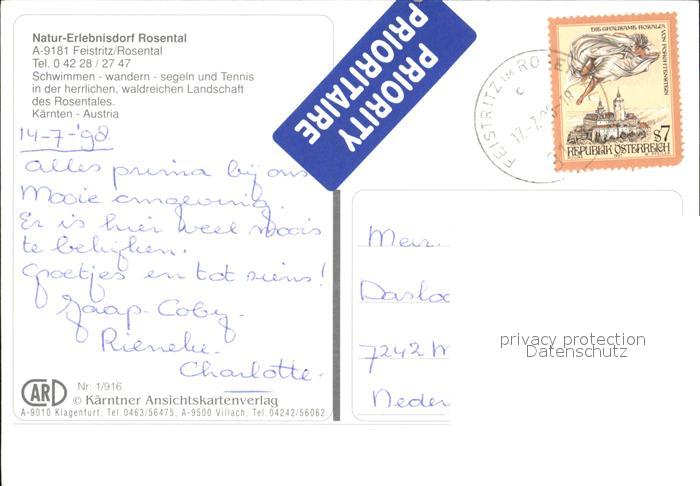 Natur-Erlebnisdorf Rosental
A-9181 Feistritz/Rosental
Tel. 0 42 28 / 27 47
Schwimmen - wandern - segeln und Tennis
in der herrlichen, waldreichen Landschaft
des Rosentales.
Kärnten - Austria
14-7-'98
alles prima bij ons
Mooie omgeving.
Er is hier veel moois
te bekijken.
Groetjes en tot ziens!
Jaap-Coby.
Rieneke.
Charlotte.
CARD
Nr: 1/916
© Kärntner Ansichtskartenverlag
A-9010 Klagenfurt, Tel.0463/56475, A-9500 Villach, Tel. 04242/56062
PRIORITY
PRIORITAIRE
FEISTRITZ IM ROSEN
DIE GRAUSAME ROSALIA
VON FORCHTENSTEIN
S7
REPUBLIK ÖSTERREICH
Daslo
7242 M
Neder
privacy protection
Datenschutz